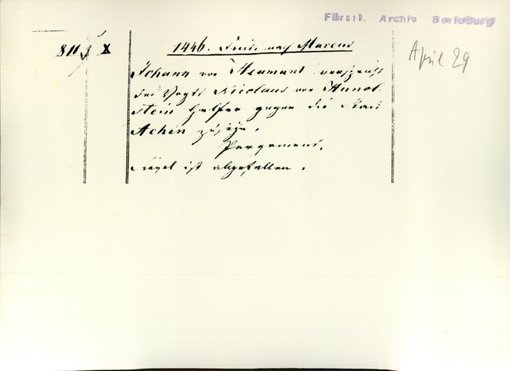 Fürstl. Archiv Berleburg
April 29
811 X
1446. Freit. nach Marcus
Johann von Neumant verspricht
dem Vogt Nicolaus von Hunol
stein Helfer gegen die Stadt
Achen zu sein.
Pergament.
Siegel ist abgefallen.